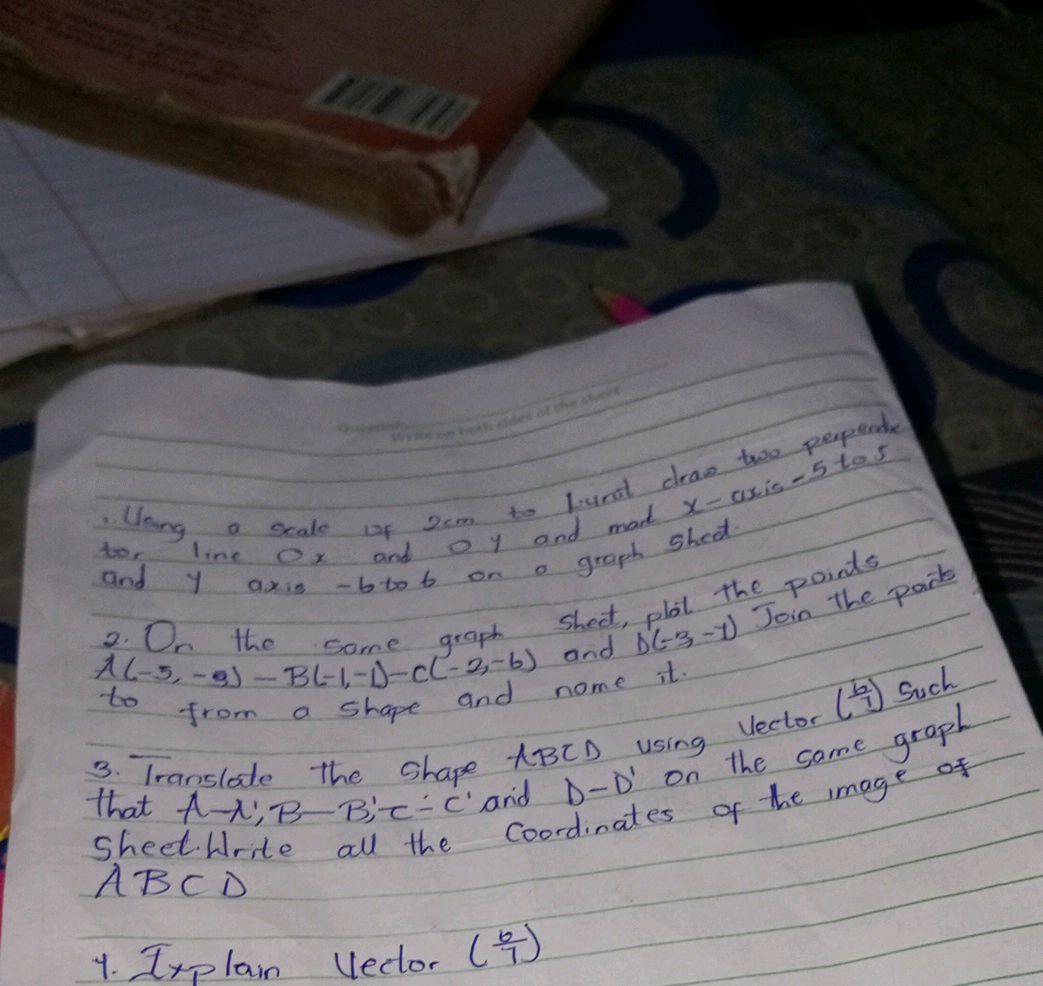 Write on both sides of the sheet
1. Using a scale of 2cm to 1unit draw two perpendic
tor line Ox and OY and mark x-axis -5 to 5
and y axis -6 to 6 on a graph shed.
2. On the some graph sheet, plot the points
A(-5, ) - B(-1,-1)-C(-2,-6) and D(-3 -1) Join the
to from a shape and name it.
3. Translate the shape ABCD using Vector (6/1) Such
that A-A', B-B', C-C' and D-D' on the same graph
Sheet. Write all the Coordinates of the image of
ABCD
4. Explain Vector (6/1)